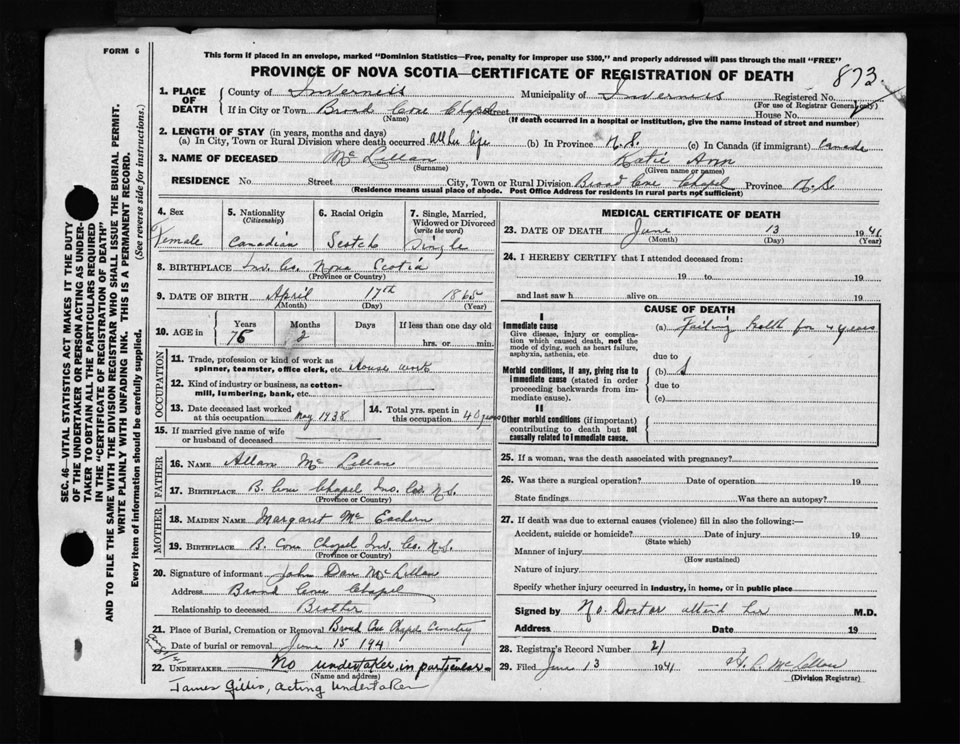 FORM 6
This form if placed in an envelope, marked "Dominion Statistics—Free, penalty for improper use $300," and properly addressed will pass through the mail "FREE"
PROVINCE OF NOVA SCOTIA—CERTIFICATE OF REGISTRATION OF DEATH
873
1. PLACE OF DEATH
County of Inverness Municipality of Inverness Registered No.
(For use of Registrar General only)
If in City or Town Broad Cove Chapel Street House No.
(Name) (If death occurred in a hospital or institution, give the name instead of street and number)
2. LENGTH OF STAY (in years, months and days)
(a) In City, Town or Rural Division where death occurred All her life (b) In Province N.S. (c) In Canada (if immigrant) Canada
3. NAME OF DECEASED Mc Lellan Katie Ann
(Surname) (Given name or names)
RESIDENCE No. Street City, Town or Rural Division Broad Cove Chapel Province N.S.
(Residence means usual place of abode. Post Office Address for residents in rural parts not sufficient)
4. Sex Female
5. Nationality (Citizenship) Canadian
6. Racial Origin Scotch
7. Single, Married, Widowed or Divorced (write the word) Single
8. BIRTHPLACE Inv. Co. Nova Scotia
(Province or Country)
9. DATE OF BIRTH April 17th 1865
(Month) (Day) (Year)
10. AGE in Years Months Days If less than one day old
76 2 hrs. or min.
OCCUPATION
11. Trade, profession or kind of work as spinner, teamster, office clerk, etc. House work
12. Kind of industry or business, as cotton-mill, lumbering, bank, etc.
13. Date deceased last worked at this occupation May 1938
14. Total yrs. spent in this occupation 40 years
15. If married give name of wife or husband of deceased
FATHER
16. NAME Allan Mc Lellan
17. BIRTHPLACE B. Cove Chapel Inv. Co. N.S.
(Province or Country)
MOTHER
18. MAIDEN NAME Margaret Mc Eachern
19. BIRTHPLACE B. Cove Chapel Inv. Co. N.S.
(Province or Country)
20. Signature of informant John Dan McLellan
Address Broad Cove Chapel
Relationship to deceased Brother
21. Place of Burial, Cremation or Removal Broad Cove Chapel Cemetery
Date of burial or removal June 15 194
22. UNDERTAKER No undertaker in particular
(Name and address)
James Gillis, acting Undertaker
MEDICAL CERTIFICATE OF DEATH
23. DATE OF DEATH June 13 1941
(Month) (Day) (Year)
24. I HEREBY CERTIFY that I attended deceased from:
19 to 19
and last saw h alive on 19
CAUSE OF DEATH
I
Immediate cause
Give disease, injury or complication which caused death, not the mode of dying, such as heart failure, asphyxia, asthenia, etc
(a) Failing health for 4 years
due to
Morbid conditions, if any, giving rise to immediate cause (stated in order proceeding backwards from immediate cause).
(b)
due to
(c)
II
Other morbid conditions (if important) contributing to death but not causally related to immediate cause.
25. If a woman, was the death associated with pregnancy?
26. Was there a surgical operation? Date of operation 19
State findings Was there an autopsy?
27. If death was due to external causes (violence) fill in also the following:—
Accident, suicide or homicide? Date of injury 19
(State which)
Manner of injury
(How sustained)
Nature of injury
Specify whether injury occurred in industry, in home, or in public place
Signed by No Doctor attend her M.D.
Address Date 19
28. Registrar's Record Number 21
29. Filed June 13 1941
(Division Registrar)
SEC. 46—VITAL STATISTICS ACT MAKES IT THE DUTY
OF THE UNDERTAKER OR PERSON ACTING AS UNDER-
TAKER TO OBTAIN ALL THE PARTICULARS REQUIRED
IN THE "CERTIFICATE OF REGISTRATION OF DEATH"
AND TO FILE THE SAME WITH THE DIVISION REGISTRAR WHO SHALL ISSUE THE BURIAL PERMIT.
WRITE PLAINLY WITH UNFADING INK. THIS IS A PERMANENT RECORD.
Every item of information should be carefully supplied. (See reverse side for instructions.)